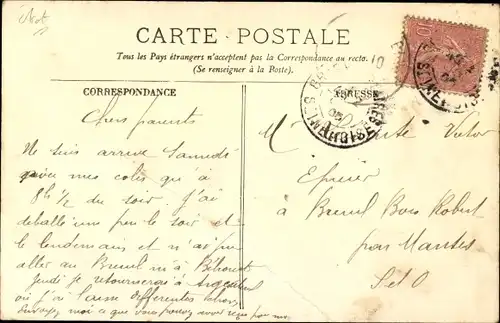 CARTE POSTALE
Tous les Pays étrangers n'acceptent pas la Correspondance au recto.
(Se renseigner à la Poste).
CORRESPONDANCE
ADRESSE
Chers parents
Ne suis arrivé Samedi
mes colis qu'à
8h 1/2 du soir. J'ai
deballé une peu le soir et
le lendemain et n'ai pu
aller au Breuil ni à Béhoust
jeudi je retournerai à Argenteuil
où j'ai laissé differentes
Envoyez moi ce que vous pouvez avoir reçu pour moi
Victor
Epicier
à Breuil Bois Robert
par Mantes
S et O